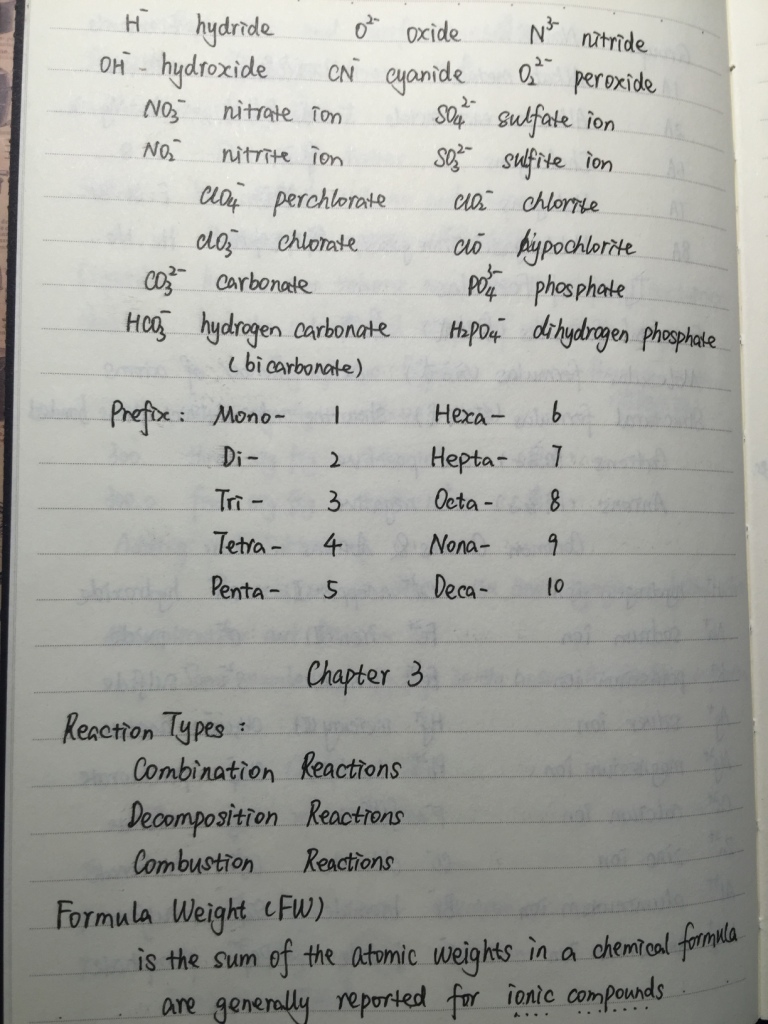 H⁻ hydride O²⁻ oxide N³⁻ nitride
OH⁻ hydroxide CN⁻ cyanide O₂²⁻ peroxide
NO₃⁻ nitrate ion SO₄²⁻ sulfate ion
NO₂⁻ nitrite ion SO₃²⁻ sulfite ion
ClO₄⁻ perchlorate ClO₂⁻ chlorite
ClO₃⁻ chlorate ClO⁻ hypochlorite
CO₃²⁻ carbonate PO₄³⁻ phosphate
HCO₃⁻ hydrogen carbonate H₂PO₄⁻ dihydrogen phosphate
(bicarbonate)
Prefix: Mono- 1 Hexa- 6
Di- 2 Hepta- 7
Tri- 3 Octa- 8
Tetra- 4 Nona- 9
Penta- 5 Deca- 10
Chapter 3
Reaction Types:
Combination Reactions
Decomposition Reactions
Combustion Reactions
Formula Weight (FW)
is the sum of the atomic weights in a chemical formula
are generally reported for ionic compounds